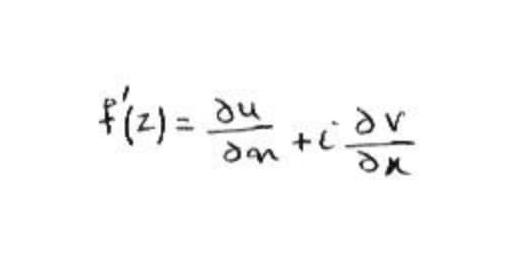 f'(z) = ∂u/∂x + i ∂v/∂x